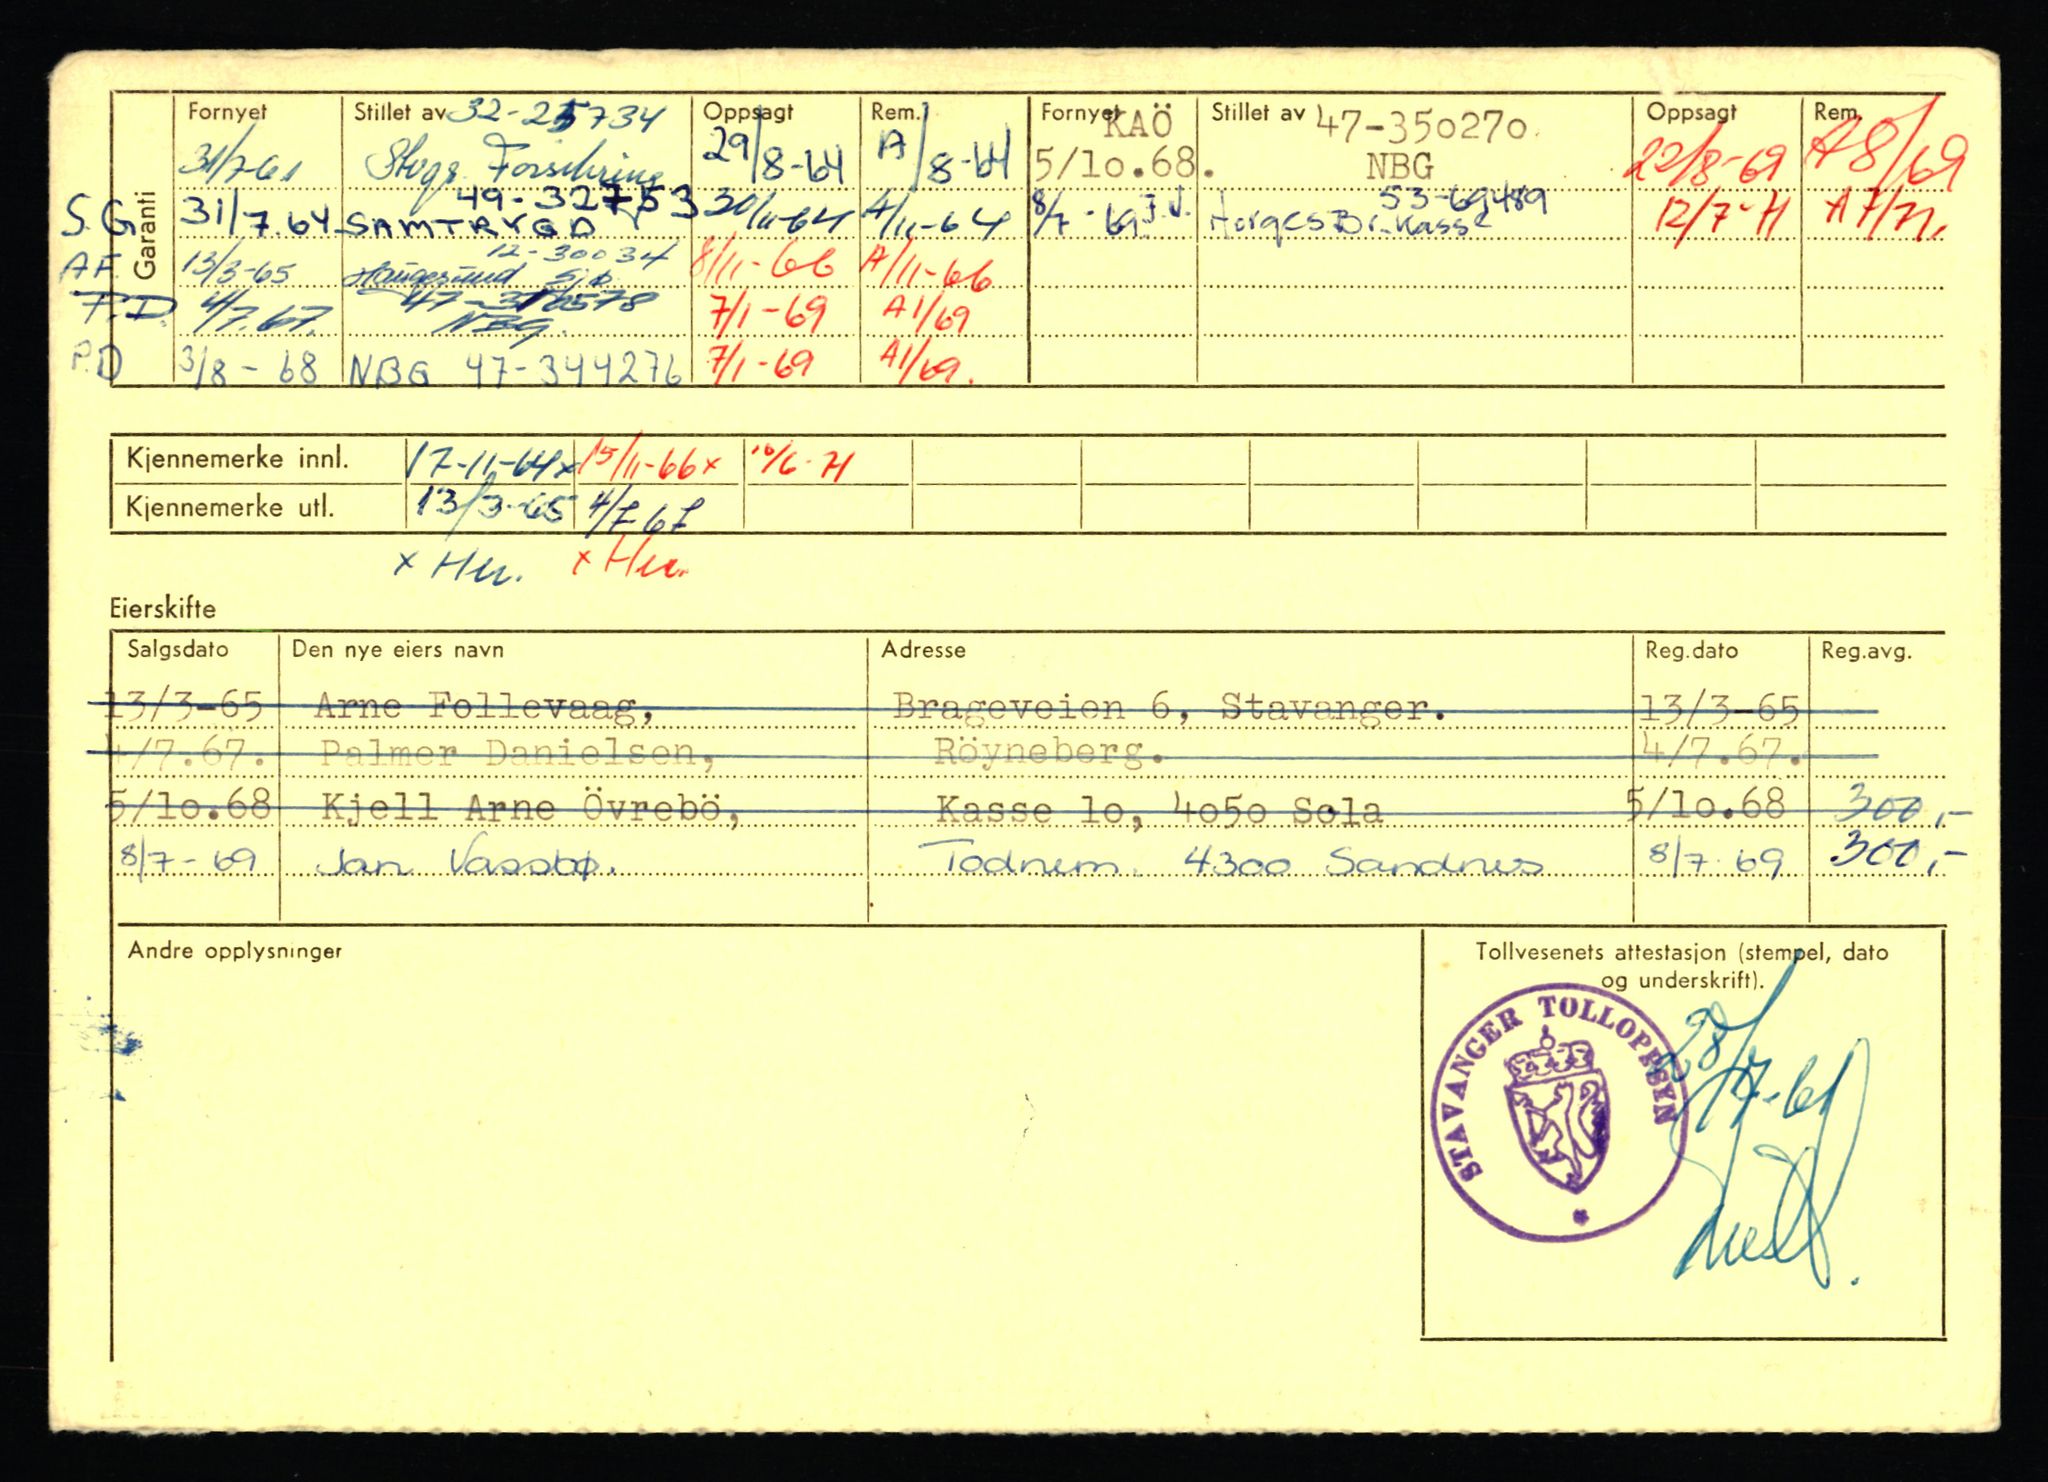 Garanti
Fornyet Stillet av 32-25734 Oppsagt Rem. Fornyet KAÖ Stillet av 47-350270 Oppsagt Rem.
31/7-61 Forsikring 29/8-64 A/8-64 5/10.68. NBG 22/8-69 A8/69
49-32753 53-69489
S.G 31/7.64 SAMTRYGD 30/11-64 A/11-64 8/7-69 J.V. Norges Br.kasse 12/7-71 A7/71.
12-30034
AF 13/3-65 Haugesund Sjø 8/11-66 A/11-66
P.D 4/7.67. NBG 7/1-69 A1/69
P.D 3/8-68 NBG 47-344276 7/1-69 A1/69.
Kjennemerke innl. 17-11-64x 15/11-66x 10/6-71
Kjennemerke utl. 13/3-65 4/7 67
x Hu. x Hu.
Eierskifte
Salgsdato Den nye eiers navn Adresse Reg.dato Reg.avg.
13/3-65 Arne Follevaag, Brageveien 6, Stavanger. 13/3-65
4/7.67. Palmer Danielsen, Röyneberg. 4/7.67.
5/10.68 Kjell Arne Övrebö, Kasse 10, 4050 Sola 5/10.68 300,-
8/7-69 Jan Vassbø. Todnem. 4300 Sandnes 8/7.69 300,-
Andre opplysninger
Tollvesenets attestasjon (stempel, dato
og underskrift).
STAVANGER TOLLOPPSYN
28/7-61